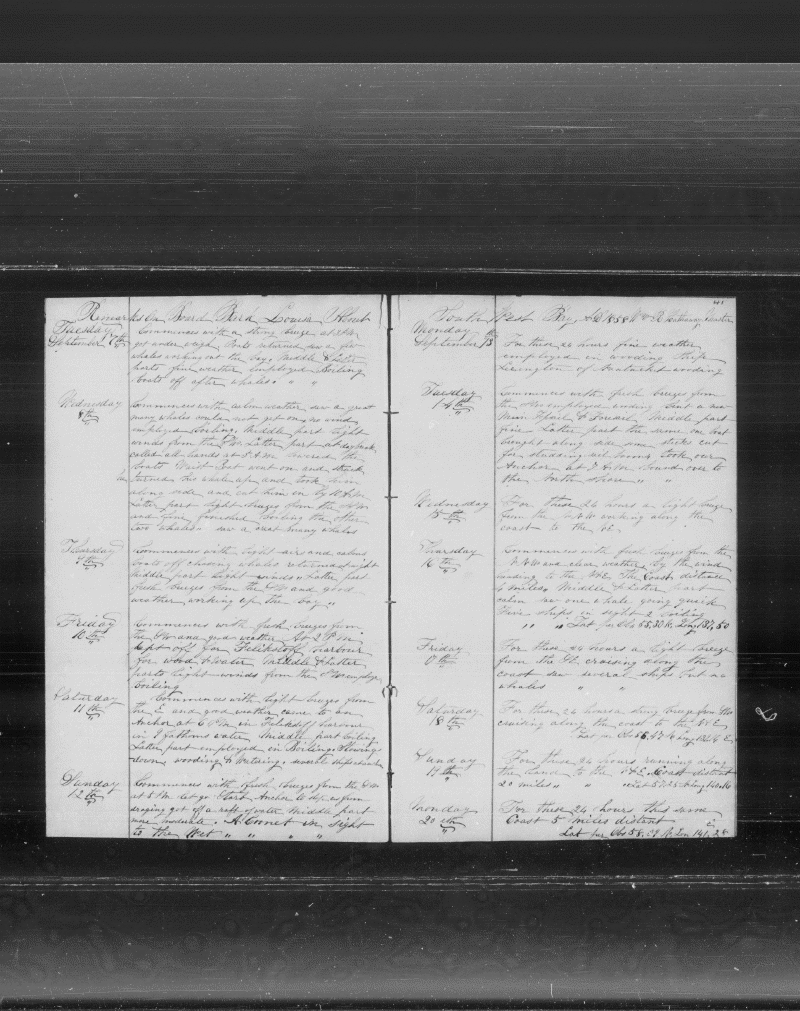 Remarks On Board Bark Louisa About
Tuesday September 7th
Commences with a strong breeze at 3 PM
got under weigh Boats returned saw a few
whales working out the bay. Middle & Latter
parts fine weather employed Boiling
boats off after whales " "
Wednesday 8th
Commences with calm weather saw a great
many whales could not get on no wind
employed boiling. Middle part light
winds from the SW. Latter part at daybreak
called all hands at 5 A.M. lowered the
boats Waist boat went on and struck
turned his whale up and took him
along side and cut him in by 10 A.M.
Latter part light breezes from the
and fine finished boiling the other
two whales. saw a great many whales
Thursday 9th
Commences with light airs and calms
boats off chasing whales returned at night
Middle part light winds " Latter part
fresh breezes from the SW and good
weather working up the bay "
Friday 10th
Commences with fresh breezes from
the SW and good weather At 2 P.M.
kept off for Felikstoff harbour
for wood & water Middle & Latter
parts light winds from the employed
boiling
Saturday 11th
Commences with light breezes from
the E and good weather came to an
Anchor at 6 P.M. in Felikstoff harbour
in 9 fathoms water Middle part boiling
Latter part employed in Boiling & Stowing
down wooding & Watering. several ships
Sunday 12th
Commences with fresh breezes from the SW
at 8 P.M. let go Larb Anchor to keep us from
draging got off a raft of water Middle part
more moderate. A. Connet in sight
to the West " " " "
41
South West Bay, AD 1858 Hathaway Master
Monday September 13th
For these 24 hours fine weather
employed in wooding Ship
Lexington of Nantucket wooding
Tuesday 14th
Commences with fresh breezes from
the employed wooding bent a new
Main Spail & Foresail Middle part
fine Latter part the same one boat
brought along side some sticks cut
for studding sail booms took our
Anchor at 7 A.M. bound over to
the North shore " "
Wednesday 15th
For these 24 hours a light breeze
from the working along the
coast to the NE
Thursday 16th
Commences with fresh breezes from the
and clear weather by the wind
heading to the NE The Coast distant
miles Middle & Latter part
calm saw one whale going quick
Five ships in sight 2 boiling
" " Lat per Obs 55,30 N. Long 137,50
Friday
For these 24 hours a light breeze
from the cruising along the
coast saw several ships but no
whales " "
Saturday 18th
For these 24 hours a strong breeze from the
cruising along the coast to the NE
Lat per Obs Long E.
Sunday 19th
For these 24 hours running along
the land to the NE. Coast distant
20 miles " " " Lat 57,25 N Long
Monday 20th
For these 24 hours this same
Coast 5 miles distant
Lat per Obs 58, N. Lon 141,